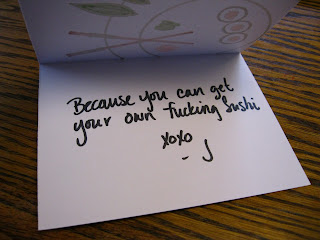 Because you can get
your own fucking Sushi
xoxo
- J